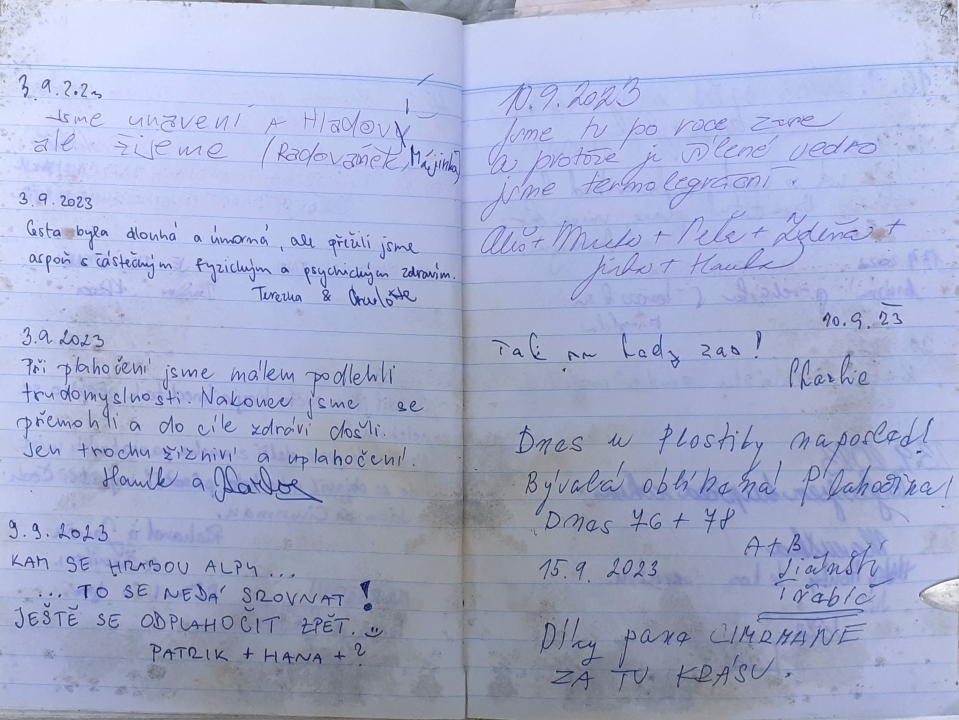 3.9.2023
Jsme unavení A Hladoví
ale žijeme (Radovánek, Májinka)
3.9.2023
Cesta byla dlouhá a úmorná, ale přežili jsme
aspoň s částečným fyzickým a psychickým zdravím.
Terezka &
3.9.2023
Při plahočení jsme málem podlehli
trudomyslnosti. Nakonec jsme se
přemohli a do cíle zdrávi došli.
Jen trochu žízniví a uplahočení.
Haník a
9.9.2023
KAM SE HRABOU ALPY...
... TO SE NEDÁ SROVNAT!
JEŠTĚ SE ODPLAHOČIT ZPĚT.
PATRIK + HANA + ?
8
10.9.2023
Jsme tu po roce zase
a protože je šílené vedro
jsme termolegrační.
Aleš + Mirek + Péťa + Zdeňa +
Jirka + Hanka
10.9.23
Tak na hady zas!
Charlie
Dnes u Plostiby naposled!
Bývalá oblíbená Plahočina!
Dnes 76 + 78
A+B
15.9.2023
Třebíč
Díky pane CIMRMANE
ZA TU KRÁSU.